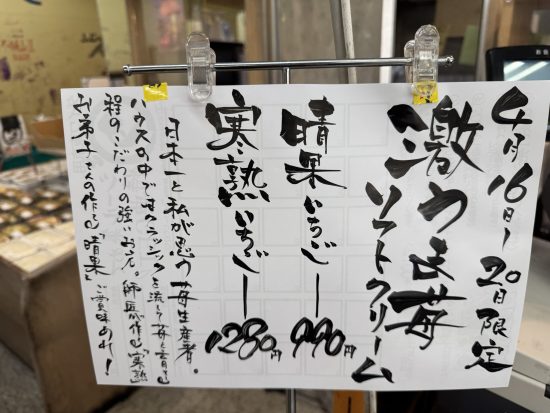 4月16日〜20日限定
激うま苺
ソフトクリーム
晴果いちごー990円
寒熟いちごー1280円
日本一と私が思う苺生産者。
ハウスの中でもクラシックを流し苺を育てる
程のこだわりの強いお兄。師匠が作る「寒熟」
お弟子さんの作る「晴果」ご賞味あれ!